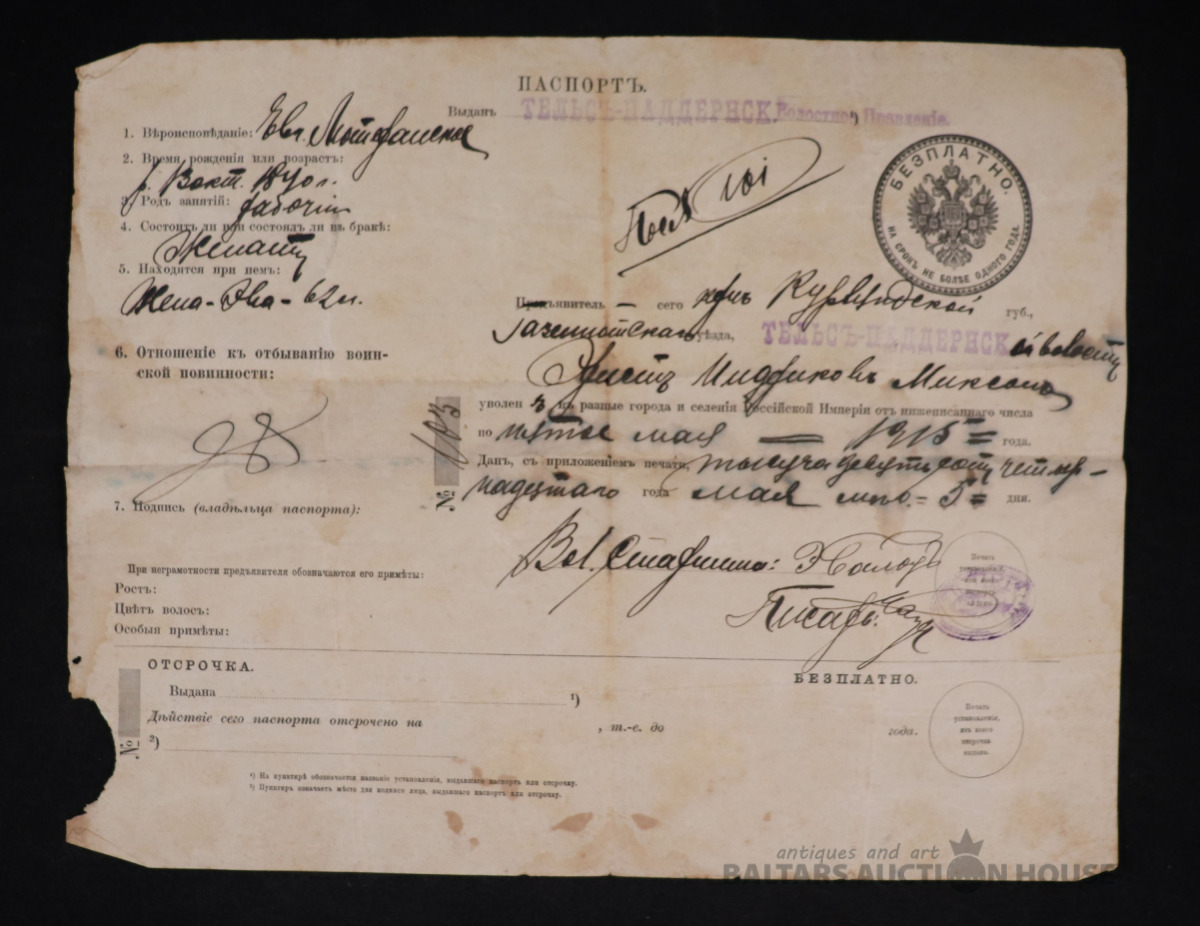 ПАСПОРТЪ.
Выданъ ТЕЛЬСЪ-ПАДДЕРНСК. Волостное Правленіе.
1. Вѣроисповѣданіе: Ев. Лютеранское
2. Время рожденія или возрастъ:
1840 г.
3. Родъ занятій: рабочій
4. Состоитъ ли или состоялъ ли въ бракѣ:
Женатъ
5. Находятся при немъ:
Жена - Эва - 62 л.
6. Отношеніе къ отбыванію воин-
ской повинности:
7. Подпись (владѣльца паспорта):
При неграмотности предъявителя обозначаются его примѣты:
Ростъ:
Цвѣтъ волосъ:
Особыя примѣты:
БЕЗПЛАТНО.
НА СРОКЪ НЕ БОЛѢЕ ОДНОГО ГОДА.
101
Предъявитель - сего Курляндской губ.,
Газенпотскаго уѣзда, ТЕЛЬСЪ-ПАДДЕРНСКой волости
Миксонъ
уволенъ въ разные города и селенія Россійской Имперіи отъ нижеписаннаго числа
по пятое мая = 1915 = года.
Данъ, съ приложеніемъ печати, тысяча девятьсотъ четыр-
надцатаго года мая мѣс. = 5 = дня.
№ 103
Вол. Старшина:
Писарь:
Печать
ОТСРОЧКА.
БЕЗПЛАТНО.
Выдана ¹)
Дѣйствіе сего паспорта отсрочено на , т.-е. до года.
²)
№
Печать
установленія,
изъ коего
отсрочка
выдана.
¹) На пунктирѣ обозначается названіе установленія, выдавшаго паспортъ или отсрочку.
²) Пунктиръ означаетъ мѣсто для подписи лица, выдавшаго паспортъ или отсрочку.
antiques and art
BALTARS AUCTION HOUSE